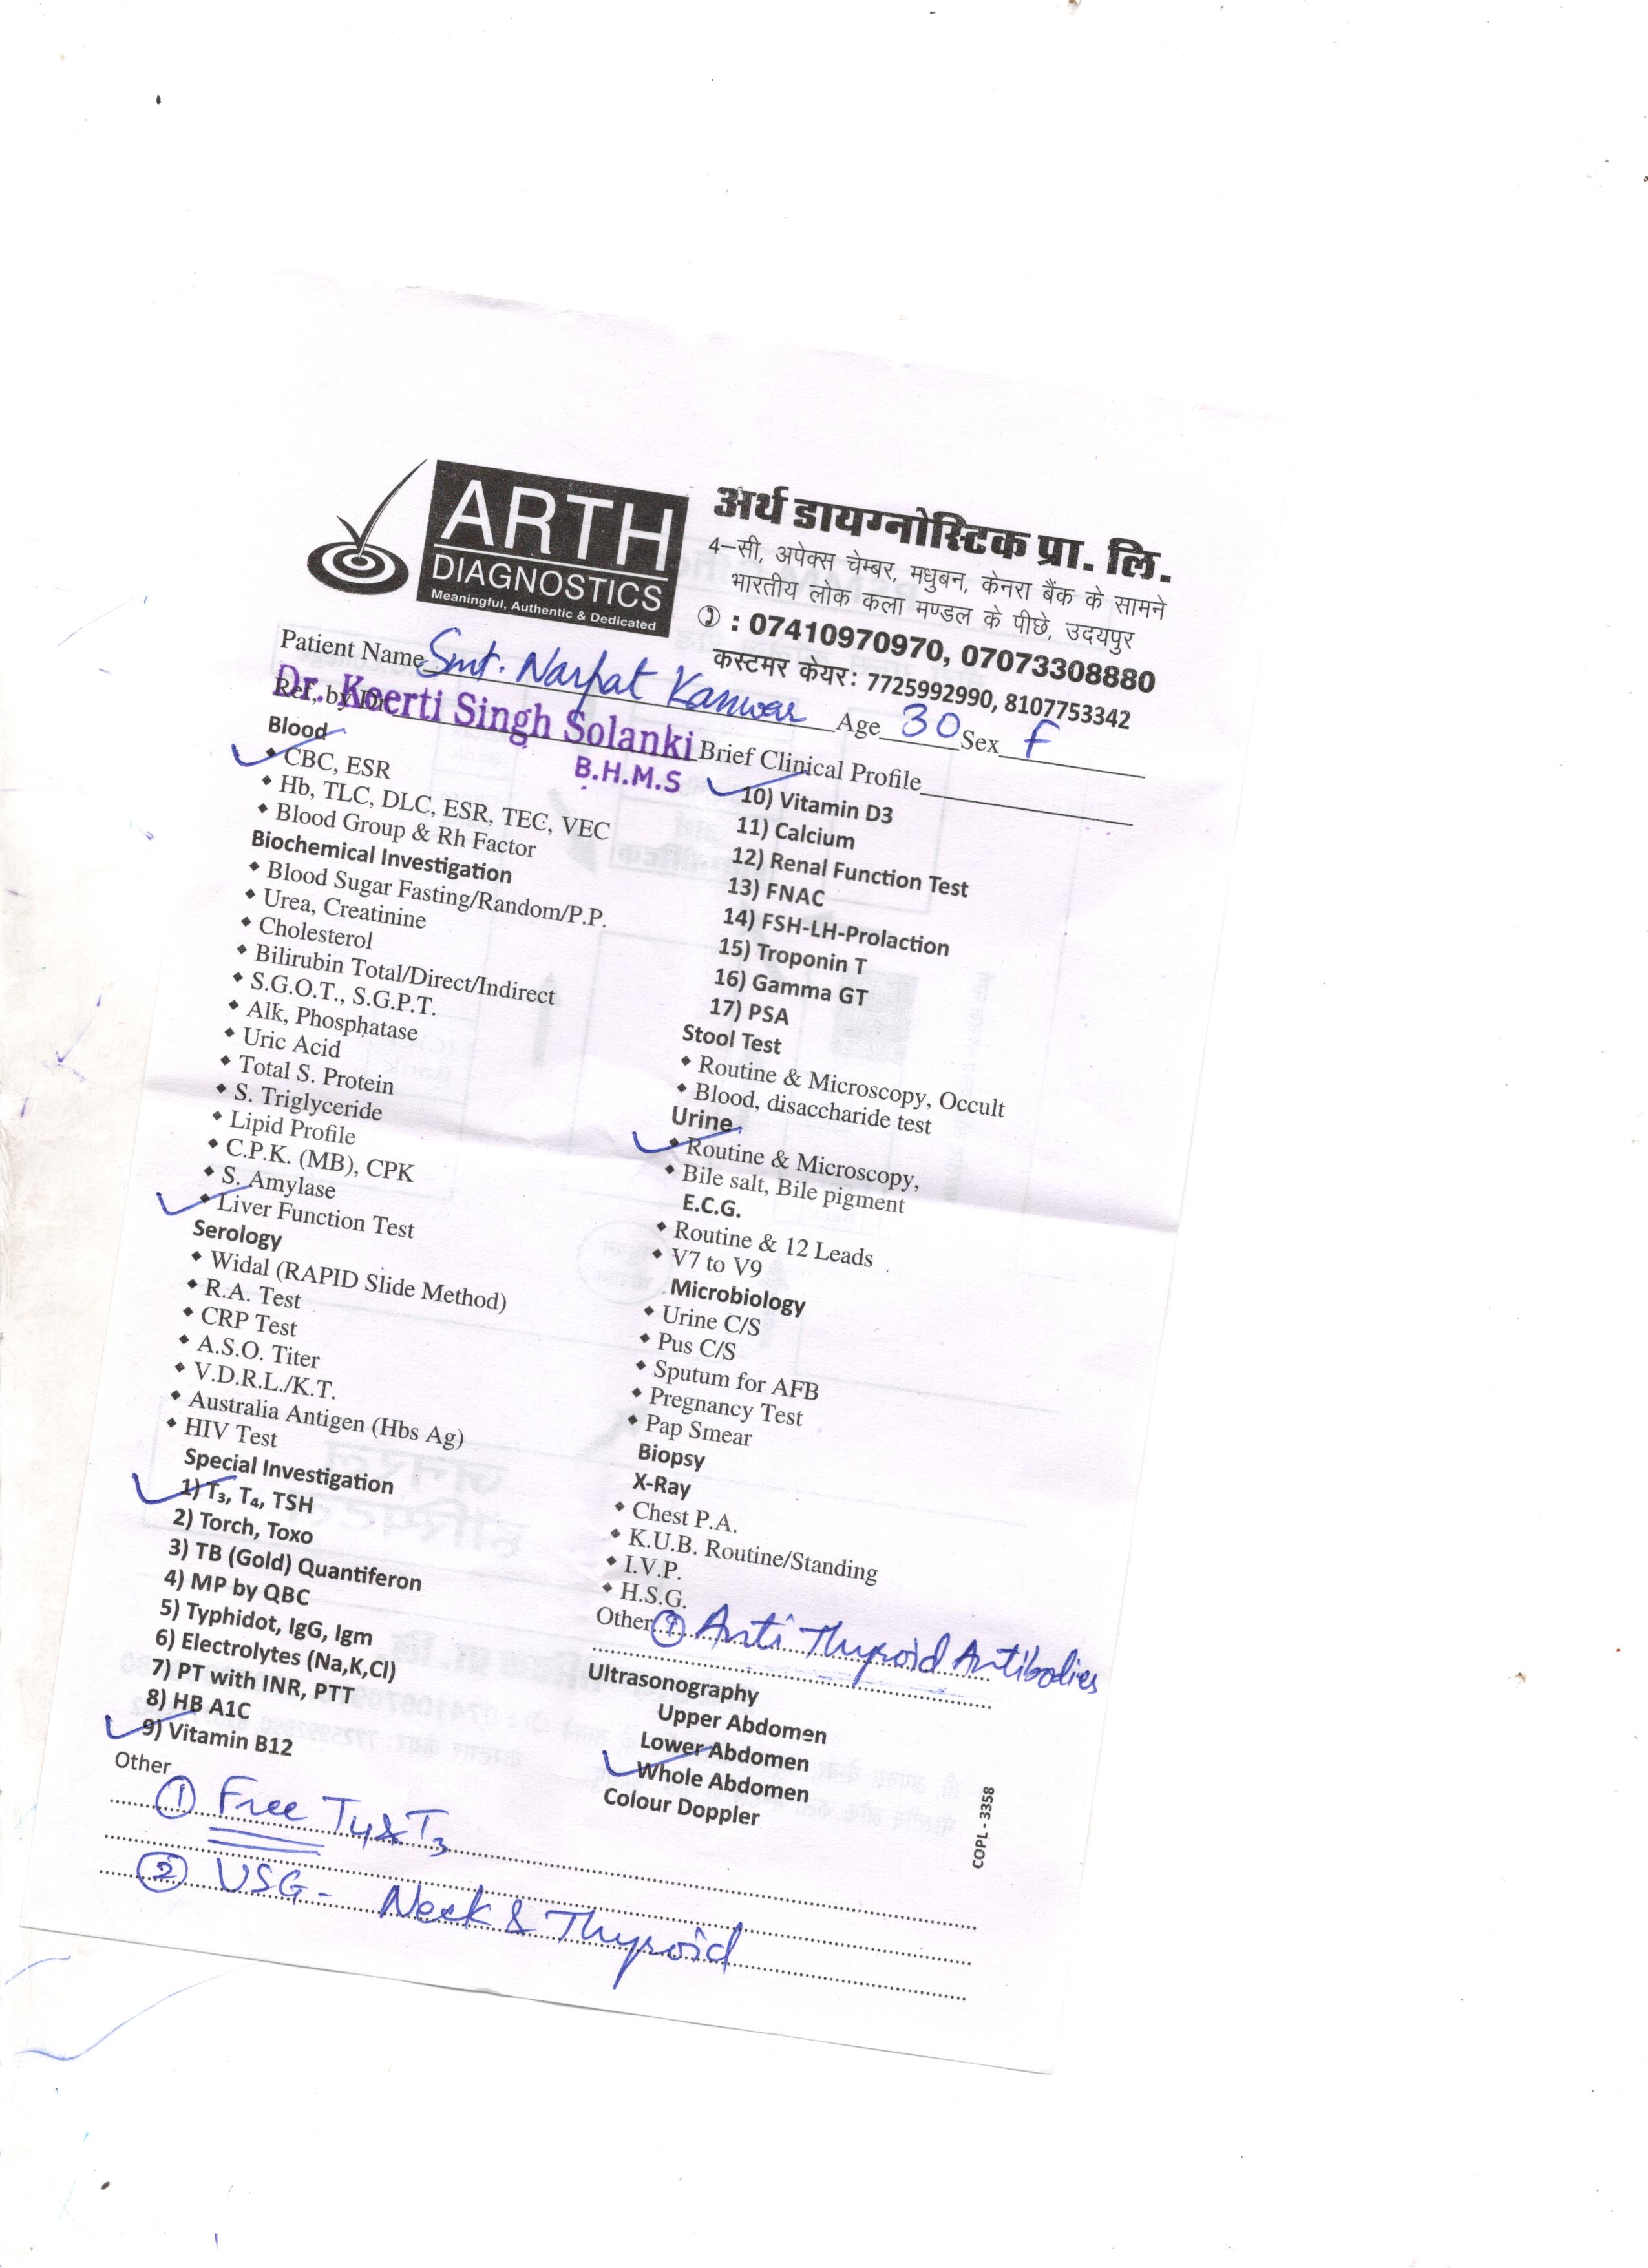 ARTH
DIAGNOSTICS
Meaningful, Authentic & Dedicated
अर्थ डायग्नोस्टिक प्रा. लि.
4–सी, अपेक्स चेम्बर, मधुबन, केनरा बैंक के सामने
भारतीय लोक कला मण्डल के पीछे, उदयपुर
: 07410970970, 07073308880
कस्टमर केयर: 7725992990, 8107753342
Patient Name Smt. Narpat Kanwar Age 30 Sex F
Ref. by Dr. Brief Clinical Profile
Dr. Keerti Singh Solanki
B.H.M.S
Blood
CBC, ESR
Hb, TLC, DLC, ESR, TEC, VEC
Blood Group & Rh Factor
Biochemical Investigation
Blood Sugar Fasting/Random/P.P.
Urea, Creatinine
Cholesterol
Bilirubin Total/Direct/Indirect
S.G.O.T., S.G.P.T.
Alk, Phosphatase
Uric Acid
Total S. Protein
S. Triglyceride
Lipid Profile
C.P.K. (MB), CPK
S. Amylase
Liver Function Test
Serology
Widal (RAPID Slide Method)
R.A. Test
CRP Test
A.S.O. Titer
V.D.R.L./K.T.
Australia Antigen (Hbs Ag)
HIV Test
Special Investigation
1) T₃, T₄, TSH
2) Torch, Toxo
3) TB (Gold) Quantiferon
4) MP by QBC
5) Typhidot, IgG, Igm
6) Electrolytes (Na,K,Cl)
7) PT with INR, PTT
8) HB A1C
9) Vitamin B12
10) Vitamin D3
11) Calcium
12) Renal Function Test
13) FNAC
14) FSH-LH-Prolaction
15) Troponin T
16) Gamma GT
17) PSA
Stool Test
Routine & Microscopy, Occult
Blood, disaccharide test
Urine
Routine & Microscopy,
Bile salt, Bile pigment
E.C.G.
Routine & 12 Leads
V7 to V9
Microbiology
Urine C/S
Pus C/S
Sputum for AFB
Pregnancy Test
Pap Smear
Biopsy
X-Ray
Chest P.A.
K.U.B. Routine/Standing
I.V.P.
H.S.G.
Other Anti Thyroid Antibodies
Ultrasonography
Upper Abdomen
Lower Abdomen
Whole Abdomen
Colour Doppler
COPL - 3358
Other
① Free T4 & T3
② USG - Neck & Thyroid